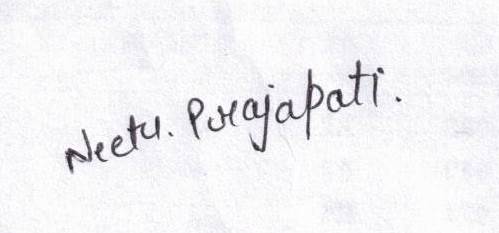 Neetu. Prajapati.